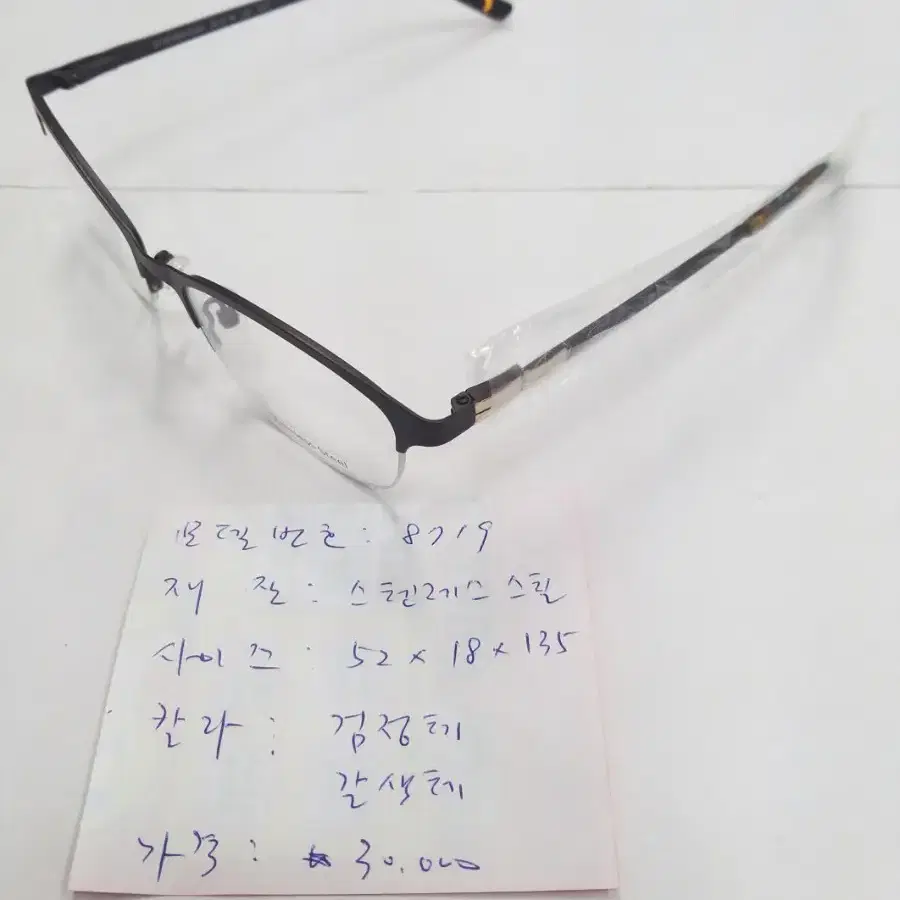 모델번호: 8719
재 질: 스텐레스 스틸
사이즈: 52 x 18 x 135
칼라: 검정테
갈색테
가격: ₩30,000